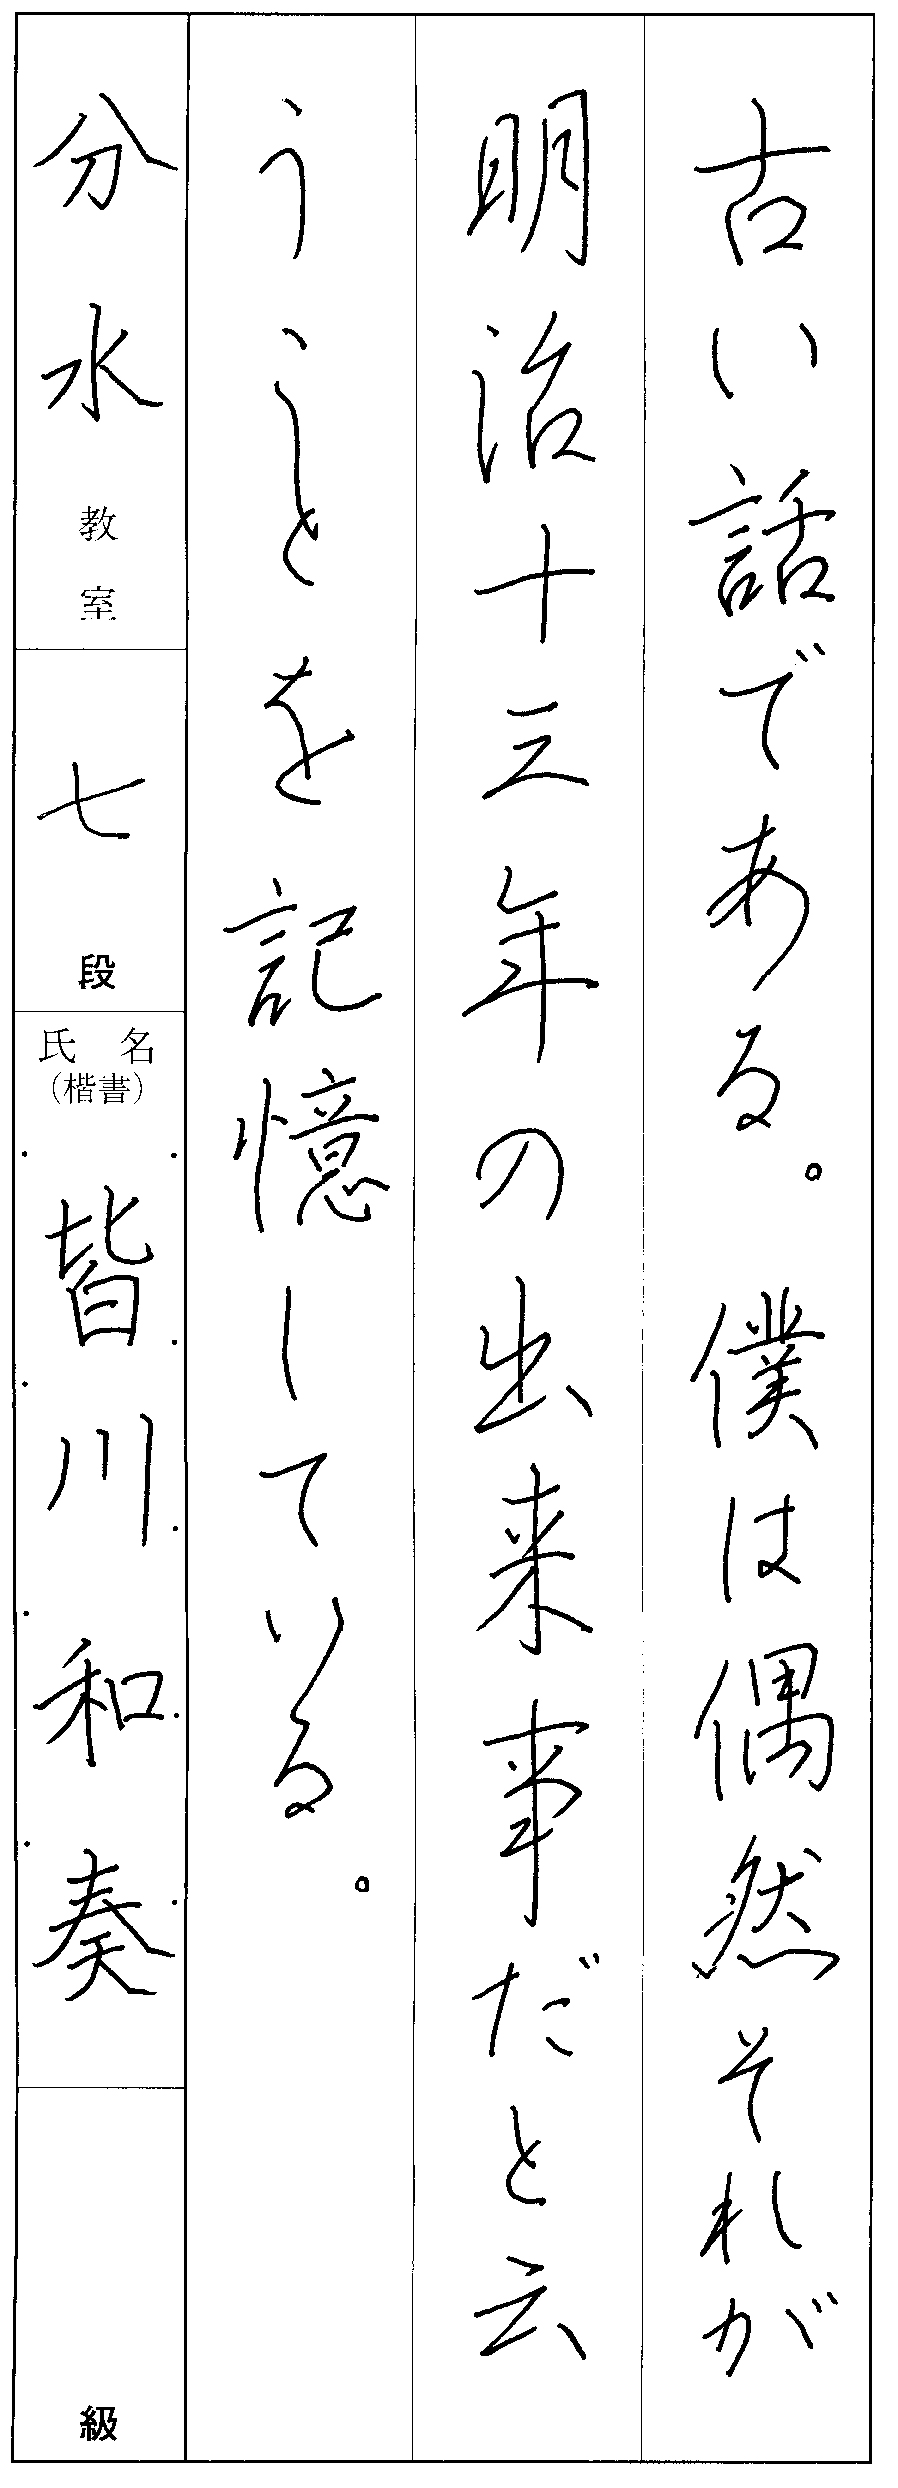 古い話である。僕は偶然それが
明治十三年の出来事だと云
うことを記憶している。
分水教室
七段
氏名
(楷書)
皆川和奏
級